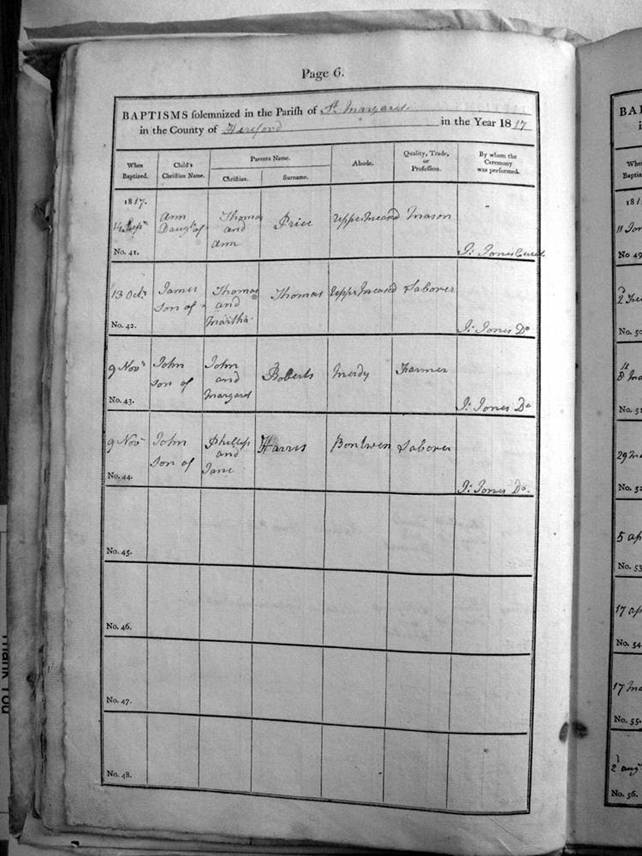 Page 6.
BAPTISMS solemnized in the Parish of St. Margaret
in the County of Hereford in the Year 1817
When Baptized. Child's Christian Name. Parents Name. Christian. Surname. Abode. Quality, Trade, or Profession. By whom the Ceremony was performed.
1817.
14 Ann Daughr of Thomas and Ann Price Mason J: Jones Curate
No. 41.
13 Octr James Son of Thomas and Martha Thomas Laborer J: Jones Do
No. 42.
9 Novr John Son of John and Margaret Roberts Merdy Farmer J: Jones Do
No. 43.
9 Novr John Son of Phillip and Jane Harris Laborer J: Jones Do.
No. 44.
No. 45.
No. 46.
No. 47.
No. 48.
BA
Whe
Baptiz
181
No 49
No. 50
No. 51
29
No. 52
5 ap
No. 53
17 ap
No. 54
17 Ma
No. 55.
2 aug
No. 56.
Thank You